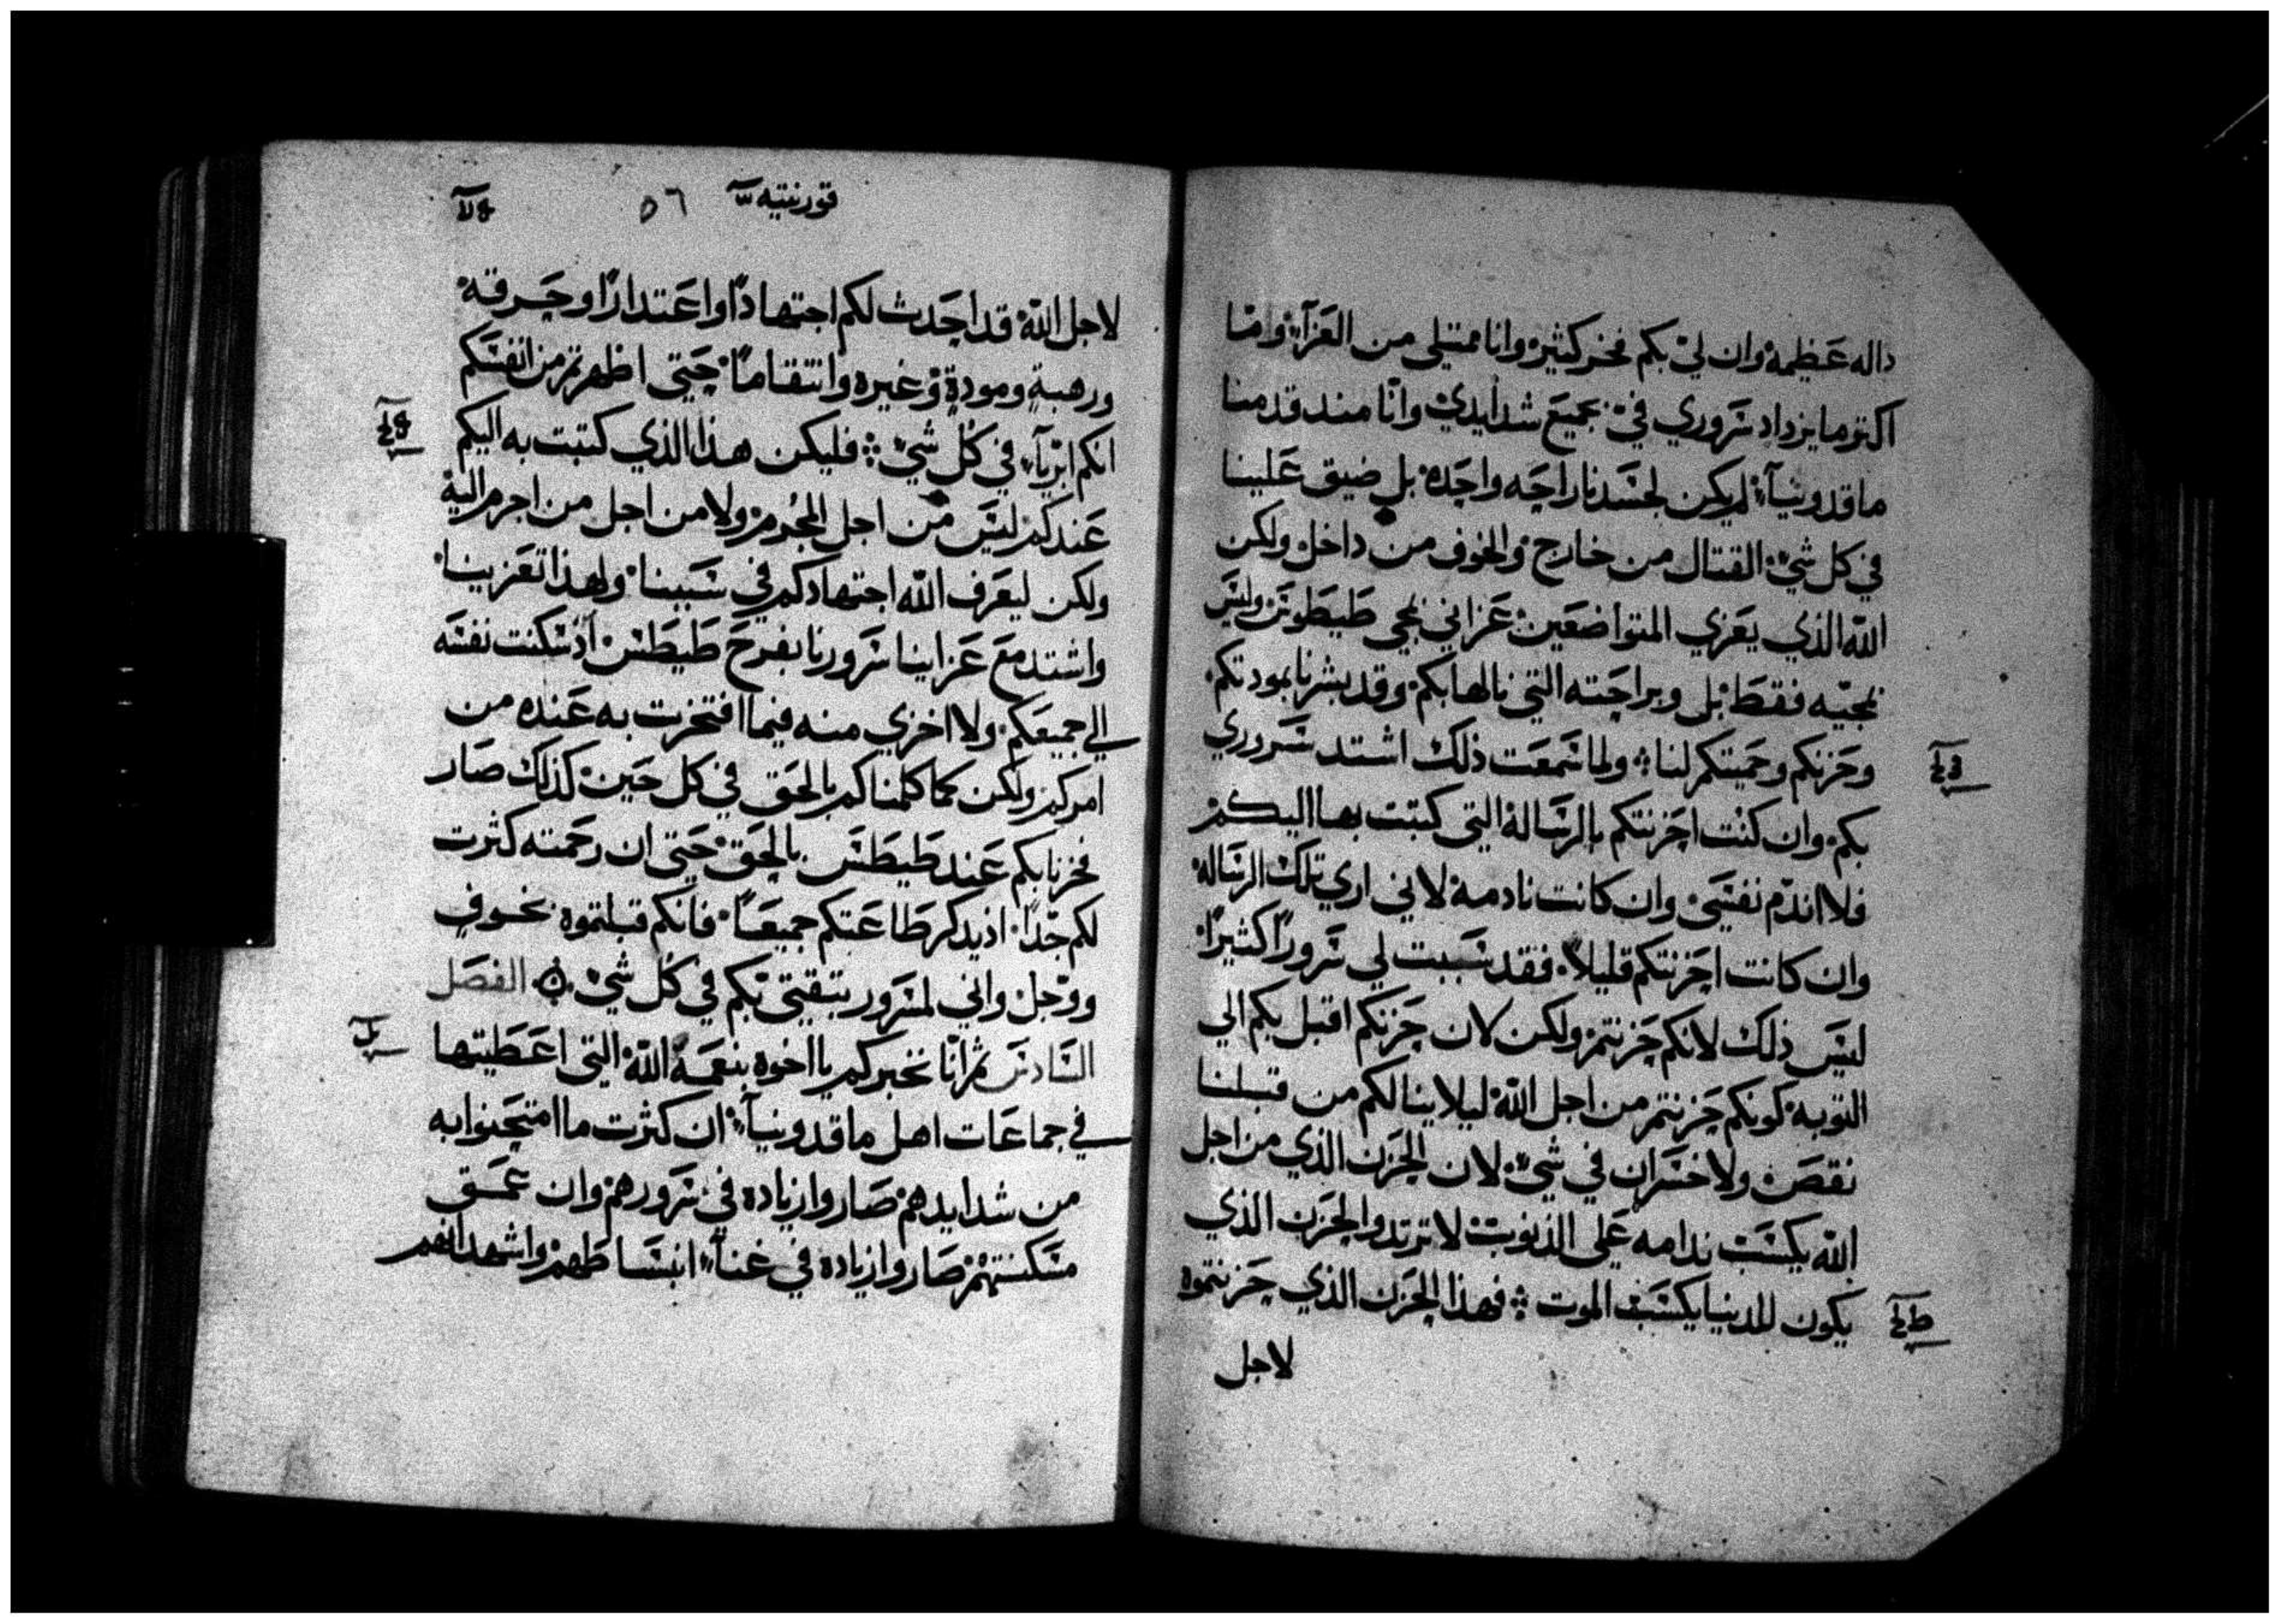 داله عظيمة وان لي بكم فخر كثير وانا ممتلي من العزآء وانا
اكتر ما يزداد سروري في جميع شدايدي وانّا مند قدمنا
ماقدونيآء لم يكن لجسدنا راحه واحده بل ضيق علينا
في كل شيء القتال من خارج والخوف من داخل ولكن
الله الذي يعزي المتواضعين عزاني بمجي طيطوس وليس
بمجيه فقط بل وبراحته التي نالها بكم وقد بشرنا بمودتكم
وحزنكم وحميتكم لنا ولما سمعت ذلك اشتد سروري
بكم وان كنت احزنتكم بالرسالة التي كتبت بها اليكم
فلا اندّم نفسي وان كانت نادمة لاني اري تلك الرساله
وان كانت احزنتكم قليلاً فقد سببت لي سروراً كثيراً
ليس ذلك لانكم حزنتم ولكن لان حزنكم اقبل بكم الي
التوبه كونكم حزنتم من اجل الله ليلا ينالكم من قبلنا
نقص ولا خسران في شيء لان الحزن الذي من اجل
الله يكسب ندامه علي الذنوب لا ترتد والحزن الذي
يكون للدنيا يكسب الموت فهذا الحزن الذي حزنتموه
لاجل
قورنتيه ٥٦
لاجل الله قد احدث لكم اجتهاداً واعتداراً وحرقة
ورهبةٍ ومودةٍ وغيره وانتقاماً حتى اظهرتم من انفسكم
انكم ابريآء في كل شيء فليكن هذا الذي كتبت به اليكم
عندكم ليس من اجل المجُرم ولا من اجل من اجرم اليه
ولكن ليعرف الله اجتهادكم في سببنا ولهذا تعزينا
واشتد مع عزاينا سرورنا بفرح طيطس اذ سكنت نفسه
الي جميعكم ولا اخزي منه فيما افتخرت به عنده من
امركم ولكن كما كلمناكم بالحق في كل حين كذلك صار
فخرنا بكم عند طيطس بالحق حتي ان رحمته كثرت
لكم جّداً اذ يدكر طاعتكم جميعاً فانكم قبلتموه بخوف
ووجل واني لمسرور بتقتي بكم في كل شيء الفصل
السادس ثم انّا نخبركم يا اخوه بنعمة الله التي اعطيتها
في جماعات اهل ماقدونيآء ان كثرت ما امتحنوا به
من شدايدهم صاروا زياده في سرورهم وان عمق
مسكنتهم صاروا زياده في غنآء انبساطهم واشهد انهم